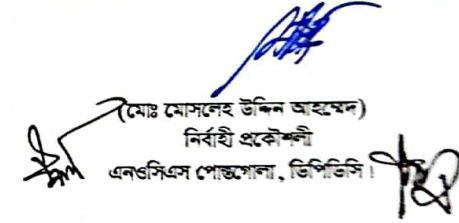 (মোঃ মোসলেহ উদ্দিন আহম্মেদ)
নির্বাহী প্রকৌশলী
এনওসিএস পোস্তগোলা, ডিপিডিসি।